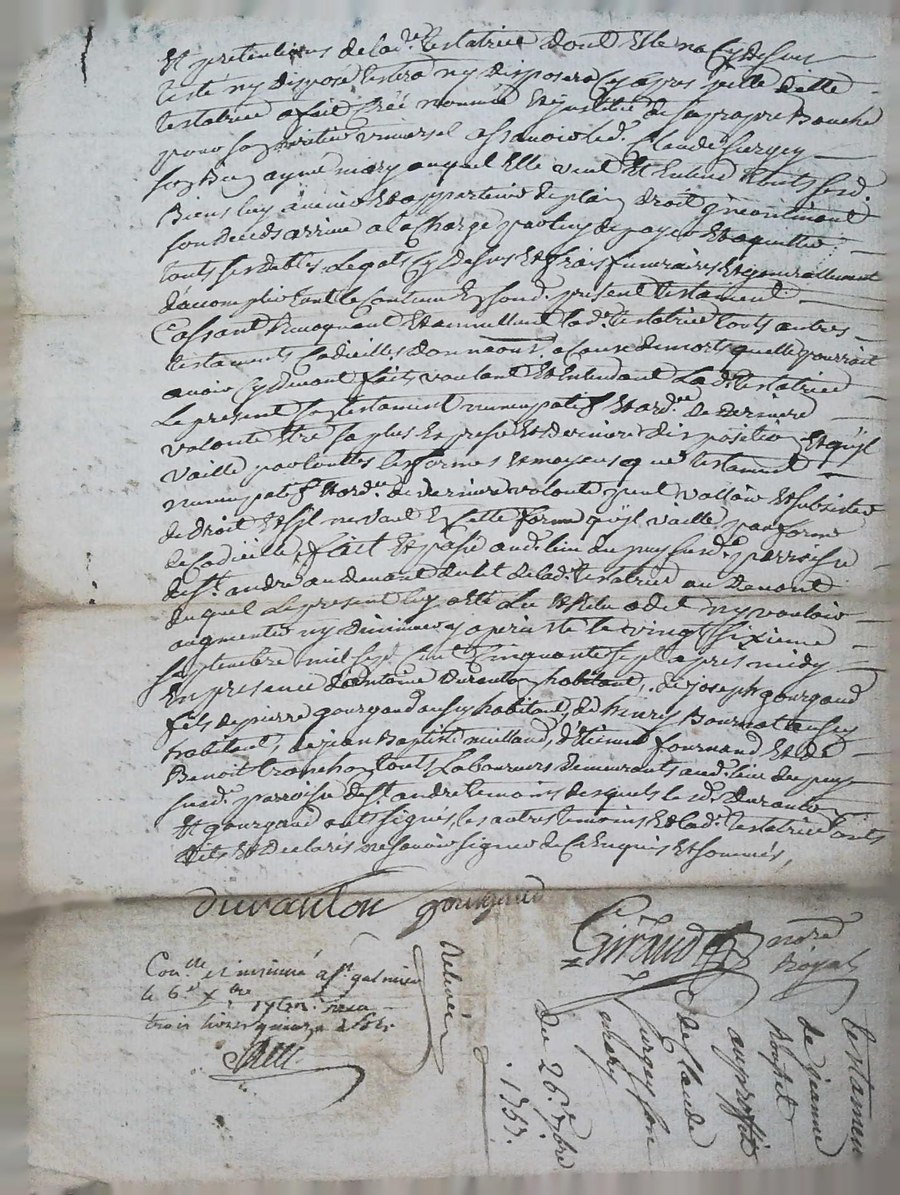 Et pretentions de lad.e testatrice dont Elle na Cy dessus
testé ny disposé testera ny disposera Cy apres jcelle ditte
testatrice a fait Créé nommé Et jnstitué de sa propre Bouche
pour son heritier vniversel assavoir led. Claude Surgey
son Bien aymé mary auquel Elle veut Et Entend touts sesd.
Biens luy avenir Et appartenir de plain droit jncontinant
son deceds arrivé a la Charge par luy de payer Et aquitter
touts ses debtes Legats Cy dessus Et frais funeraires Et generallement
daccomplir tout le Contenu En sond. present testament
Cassant Revoquant Et annullant lad.e testatrice touts autres
testaments Codicilles donnaons a Cause de morts quelle pourrait
avoir Cy devant faits voulant Et Entendant La d.e testatrice
Le present son testament nuncupatif Et ord.ce de derniere
volonté Etre sa plus Expresse Et derniere disposition Et quil
vaille par touttes les formes Et moyens que testament
nuncupatif Et ord.ce de derniere volonté peut valloir Et subsister
de droit Et sil ne vaut En Cette forme quil vaille par forme
de Codicille, fait Et passé aud. lieu du puy susd. parroisse
de St. andré au devant du lit de lad. testatrice au devant
duquel Le present luy a été Lu Et Relu a dit ny vouloir
augmenter ny diminuer apres le vingt sixieme
septembre mil sept Cent Cinquante sept apres midy
En presence d'antoine Duranton habitant, de joseph gourgaud
fils de pierre gourgaud aussy habitant, de
habitant, de jean Baptiste milland, d'Etienne fournand Et de
Benoit tranchon touts Laboureurs demeurants aud. lieu du puy
susd. parroisse de St. andré temoins desquels le sd. Duranton
Et gourgaud ont signés, les autres temoins Et lad. testatrice onts
dits Et declarés ne savoir signer de Ce Enquis Et sommés,
duranton gourgaud
Giraud
no.re
Royal
Con.lle et insinué a St galmier
le 6.e Xbre
trois livres
Delivré
testament
de jeanne
au proffit
de Claude
Surgey son
mary
du 26. 7bre